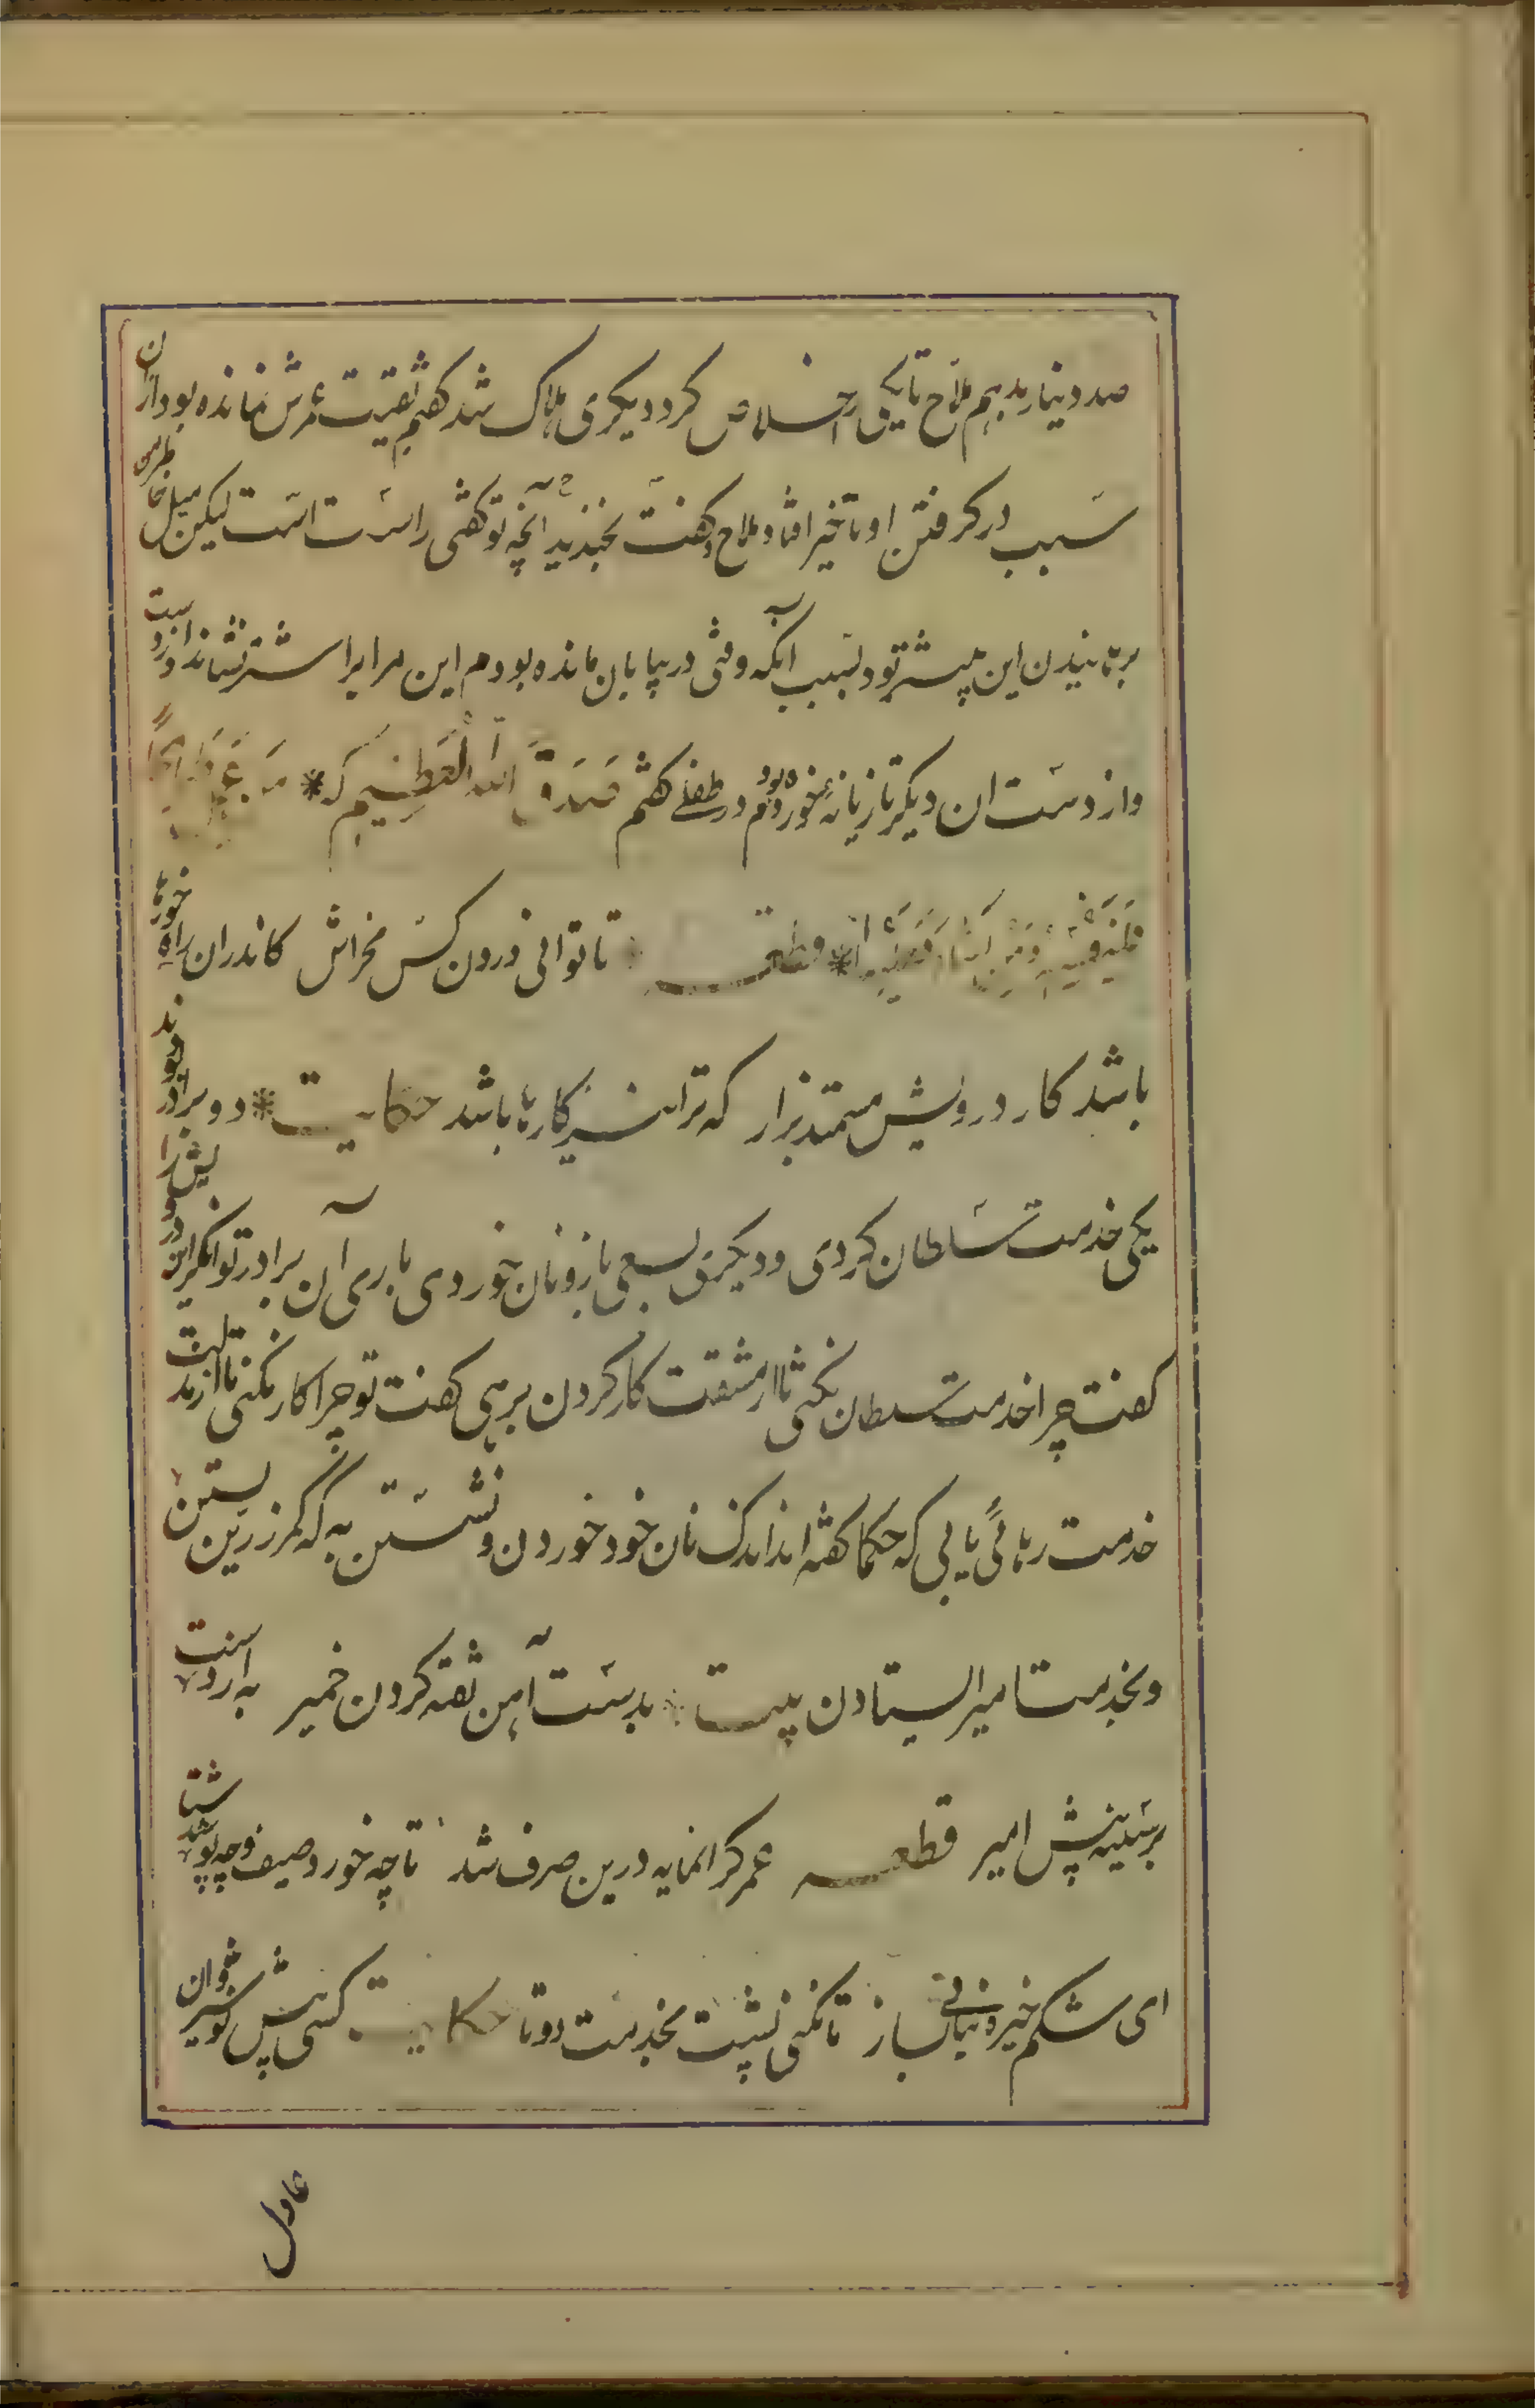 صد دینار بدهم ملاح تا یکی را خلاص کرد دیگری هلاک شد گفتم بقیت عمرش نمانده بود از ان
سبب در گرفتن او تاخیر افتاد ملاح بخندید و گفت آنچه تو گفتی راست است لیکن میل خاطر من
برهانیدن این بیشتر بود بسبب آنکه وقتی در بیابان مانده بودم این مرا برا شتر نشاند و از دست
واز دست ان دیگر تازیانه خورده بودم در طفلی گفتم صَدَقَ اللهُ الْعَظِیم که * مَن عَمِلَ صَالِحًا
فَلِنَفْسِهِ وَمَنْ اَسَاءَ فَعَلَیْهَا * قطعه تا توانی درون کس مخراش کاندران راه خارها
باشد کار درویش مستمند برار که ترا نیز کارها باشد حکایت * دو برادر بودند
یکی خدمت سلطان کردی و دیگری بسعی بازو نان خوردی باری آن برادر توانگر این درویش را
گفت چرا خدمت سلطان نکنی تا از مشقت کار کردن برهی گفت تو چرا کار نکنی تا از مذلت
خدمت رهائی یابی که حکما گفته اند اندک نان خود خوردن و نشستن به که کمر زرین بستن
و بخدمت امیر ایستادن بیت بدست آهن تفته کردن خمیر به از دست
بر سینه پیش امیر قطعه عمر گرانمایه درین صرف شد تا چه خورد صیف و چه پوشد شتا
ای شکم خیره بنانی بساز تا نکنی پشت بخدمت دوتا حکایت کسی پیش نوشیروان
عادل